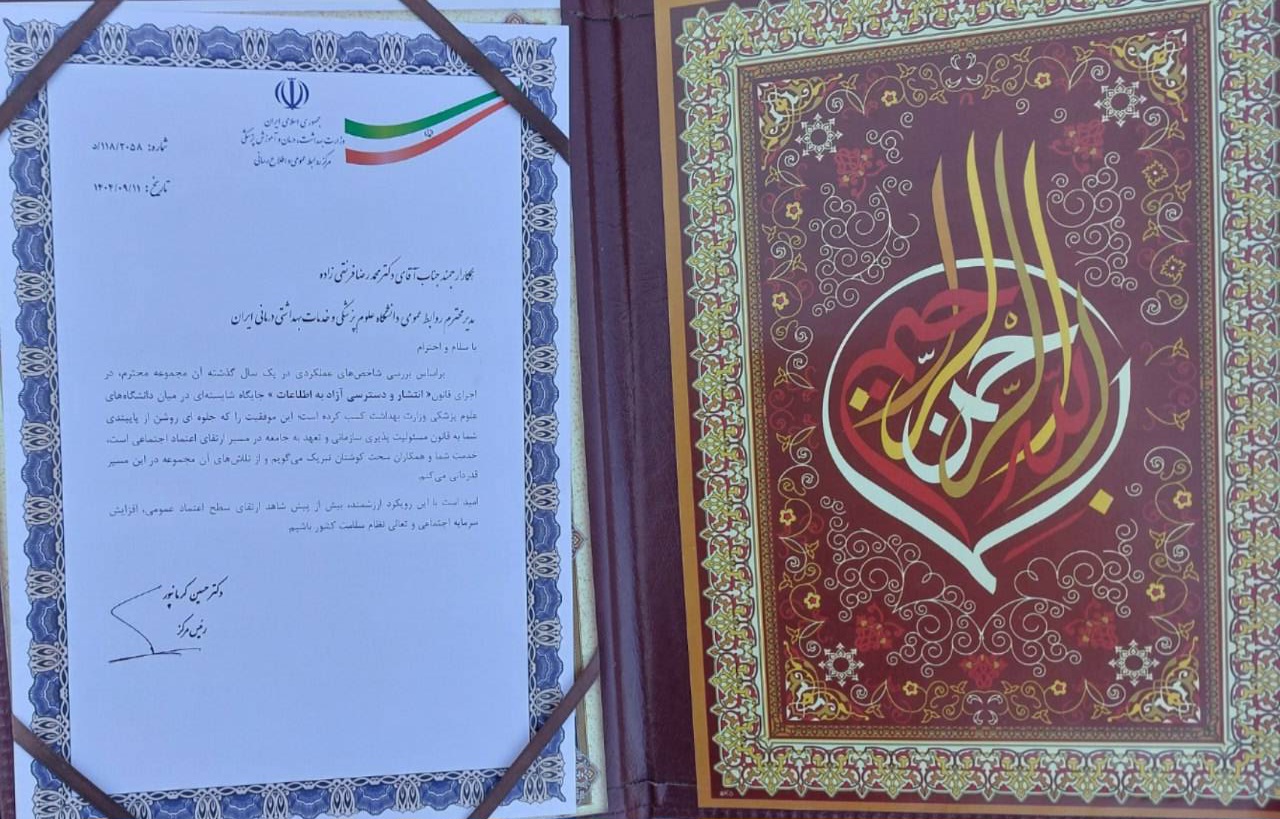 جمهوری اسلامی ایران
وزارت بهداشت، درمان و آموزش پزشکی
مرکز روابط عمومی و اطلاع رسانی
شماره: ۵/۱۱۸/۲۰۵۸
تاریخ: ۱۴۰۴/۰۹/۱۱
همکار ارجمند جناب آقای دکتر محمد رضا فرنقی زاده
مدیر محترم روابط عمومی دانشگاه علوم پزشکی و خدمات بهداشتی درمانی ایران
با سلام و احترام
براساس بررسی شاخص‌های عملکردی در یک سال گذشته آن مجموعه محترم، در
اجرای قانون« انتشار و دسترسی آزاد به اطلاعات » جایگاه شایسته‌ای در میان دانشگاه‌های
علوم پزشکی وزارت بهداشت کسب کرده است؛ این موفقیت را که جلوه ای روشن از پایبندی
شما به قانون مسئولیت پذیری سازمانی و تعهد به جامعه در مسیر ارتقای اعتماد اجتماعی است،
خدمت شما و همکاران سخت کوشتان تبریک می‌گویم و از تلاش‌های آن مجموعه در این مسیر
قدردانی می‌کنم.
امید است با این رویکرد ارزشمند، بیش از پیش شاهد ارتقای سطح اعتماد عمومی، افزایش
سرمایه اجتماعی و تعالی نظام سلامت کشور باشیم.
دکتر حسین کرمانپور
رئیس مرکز
بسم الله الرحمن الرحیم